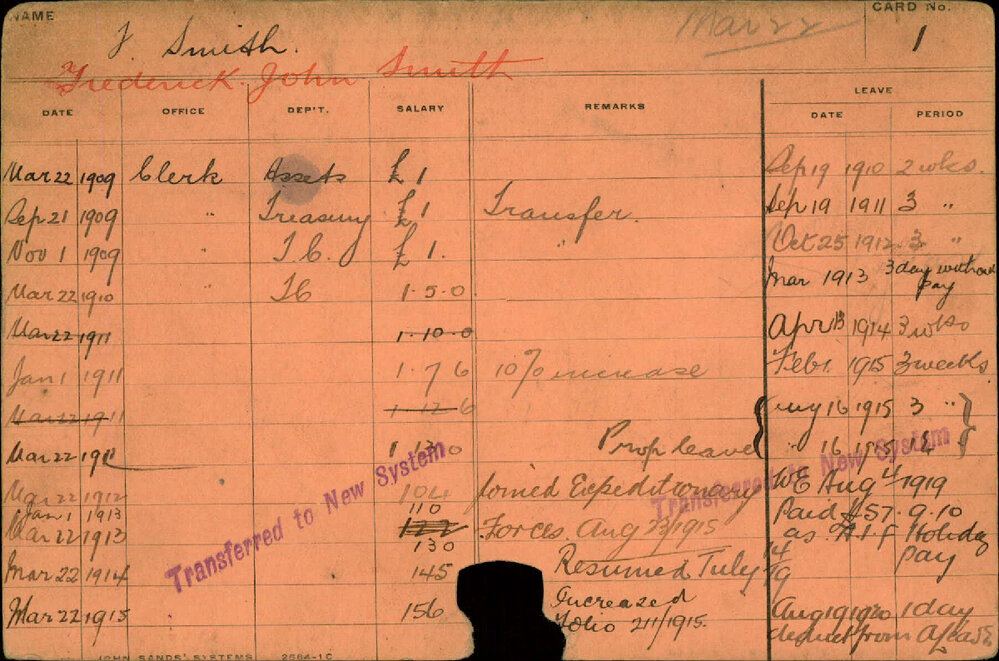 NAME
CARD No.
F. Smith.
Mar 22
1
Frederick John Smith
DATE OFFICE DEP'T. SALARY REMARKS LEAVE
DATE PERIOD
Mar 22 1909 Clerk Assets £1 Sep 19 1910 2 wks.
Sep 21 1909 " Treasury £1 Transfer. Sep 19 1911 3 "
Nov 1 1909 " T C. £1. " Oct 25 1912 3 "
Mar 22 1910 TC 1.5.0 Mar 1913 3 day without pay
Mar 22 1911 1.10.0 Apr 13 1914 3 wks
Jan 1 1911 1.7.6 10% increase Feb 1. 1915 3 weeks
Mar 22 1911 1.12.6 Aug 16 1915 3 "
Mar 22 1911 1 13 0 Prop leave " 16 1915
Mar 22 1912 104 Joined Expeditionary WE Aug 4 1919
Jan 1 1913 110 Paid £57.9.10
Mar 22 1913 122 Forces. Aug 23/1915 as A.I.F Holiday
130 pay
Mar 22 1914 145 Resumed July 14/19
Mar 22 1915 156 Increased Aug 19 1920 1 day
Folio 211/1915. deduct from
Transferred to New System
Transferred to New System
JOHN SANDS' SYSTEMS 2564-1C